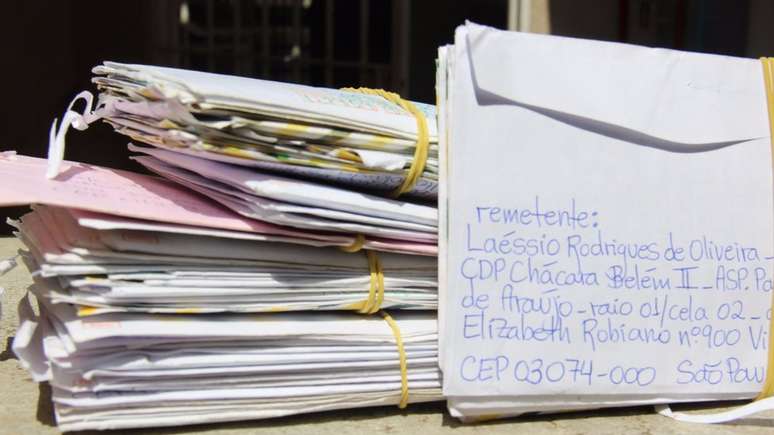 remetente:
Laéssio Rodrigues de Oliveira -
CDP Chácara Belém II - ASP. Pa
de Araújo - raio 01/cela 02 -
Elizabeth Robiano nº 900 Vi
CEP 03074-000 São Pau